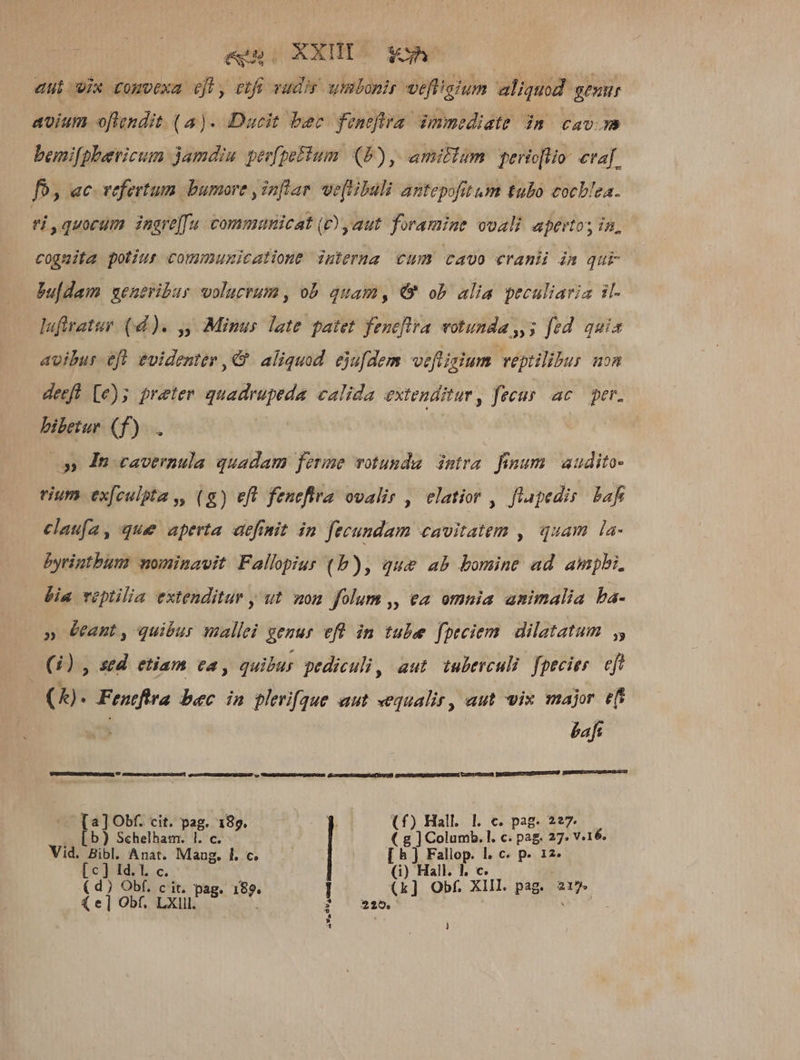 XXIII
aut vix convexa eſt, etſi rudis umbonis veſtigium aliquod genus
avium oſtendit (a). Ducit hæc feneſtra immediate in cavum
hemiſphæricum jamdiu perſpectum (b), amictum perioſtio craſ-
ſo, ac refertum humore, inſtar veſtibuli antepoſitum tubo cochlea-
ri, quocum ingreſſu communicat (c), aut foramine ovali aperto; in-
cognita potius communicatione interna cum cavo cranii in qui-
buſdam generibus volucrum, ob quam, & ob alia peculiaria il-
luſtratur (d). „ Minus late patet feneſtra rotunda „; ſed quia
avibus eſt evidenter, & aliquod ejuſdem veſtigium reptilibus non
deeſt [e); præter quadrupeda calida extenditur, ſecus ac per-
hibetur (f) .
„ In cavernula quadam ferme rotunda intra ſinum audito-
rium exſculpta „ (g) eſt feneſtra ovalis, elatior, ſtapedis baſi
clauſa, quæ aperta deſinit in ſecundam cavitatem, quam la-
byrinthum nominavit Fallopius (h), quæ ab homine ad amphi-
bia reptilia extenditur, ut non ſolum „ ea omnia animalia ha-
„ beant, quibus mallei genus eſt in tubæ ſpeciem dilatatum „
(i), sed etiam ea, quibus pediculi, aut tuberculi ſpecies eſt
(k). Feneſtra hæc in pleriſque aut æqualis, aut vix major eſt
baſi
[a] Obſ. cit. pag. 189.
[b) Schelham. l. c.
Vid. Bibl. Anat. Mang. l. c.
[c] Id. l. c.
(d) Obſ. cit. pag. 189.
(e] Obſ. LXIII.
(f) Hall. l. c. pag. 227.
(g] Columb. l. c. pag. 27. v.16.
[h] Fallop. l. c. p. 12.
(i) Hall. l. c.
(k] Obſ. XIII. pag. 217.
220.